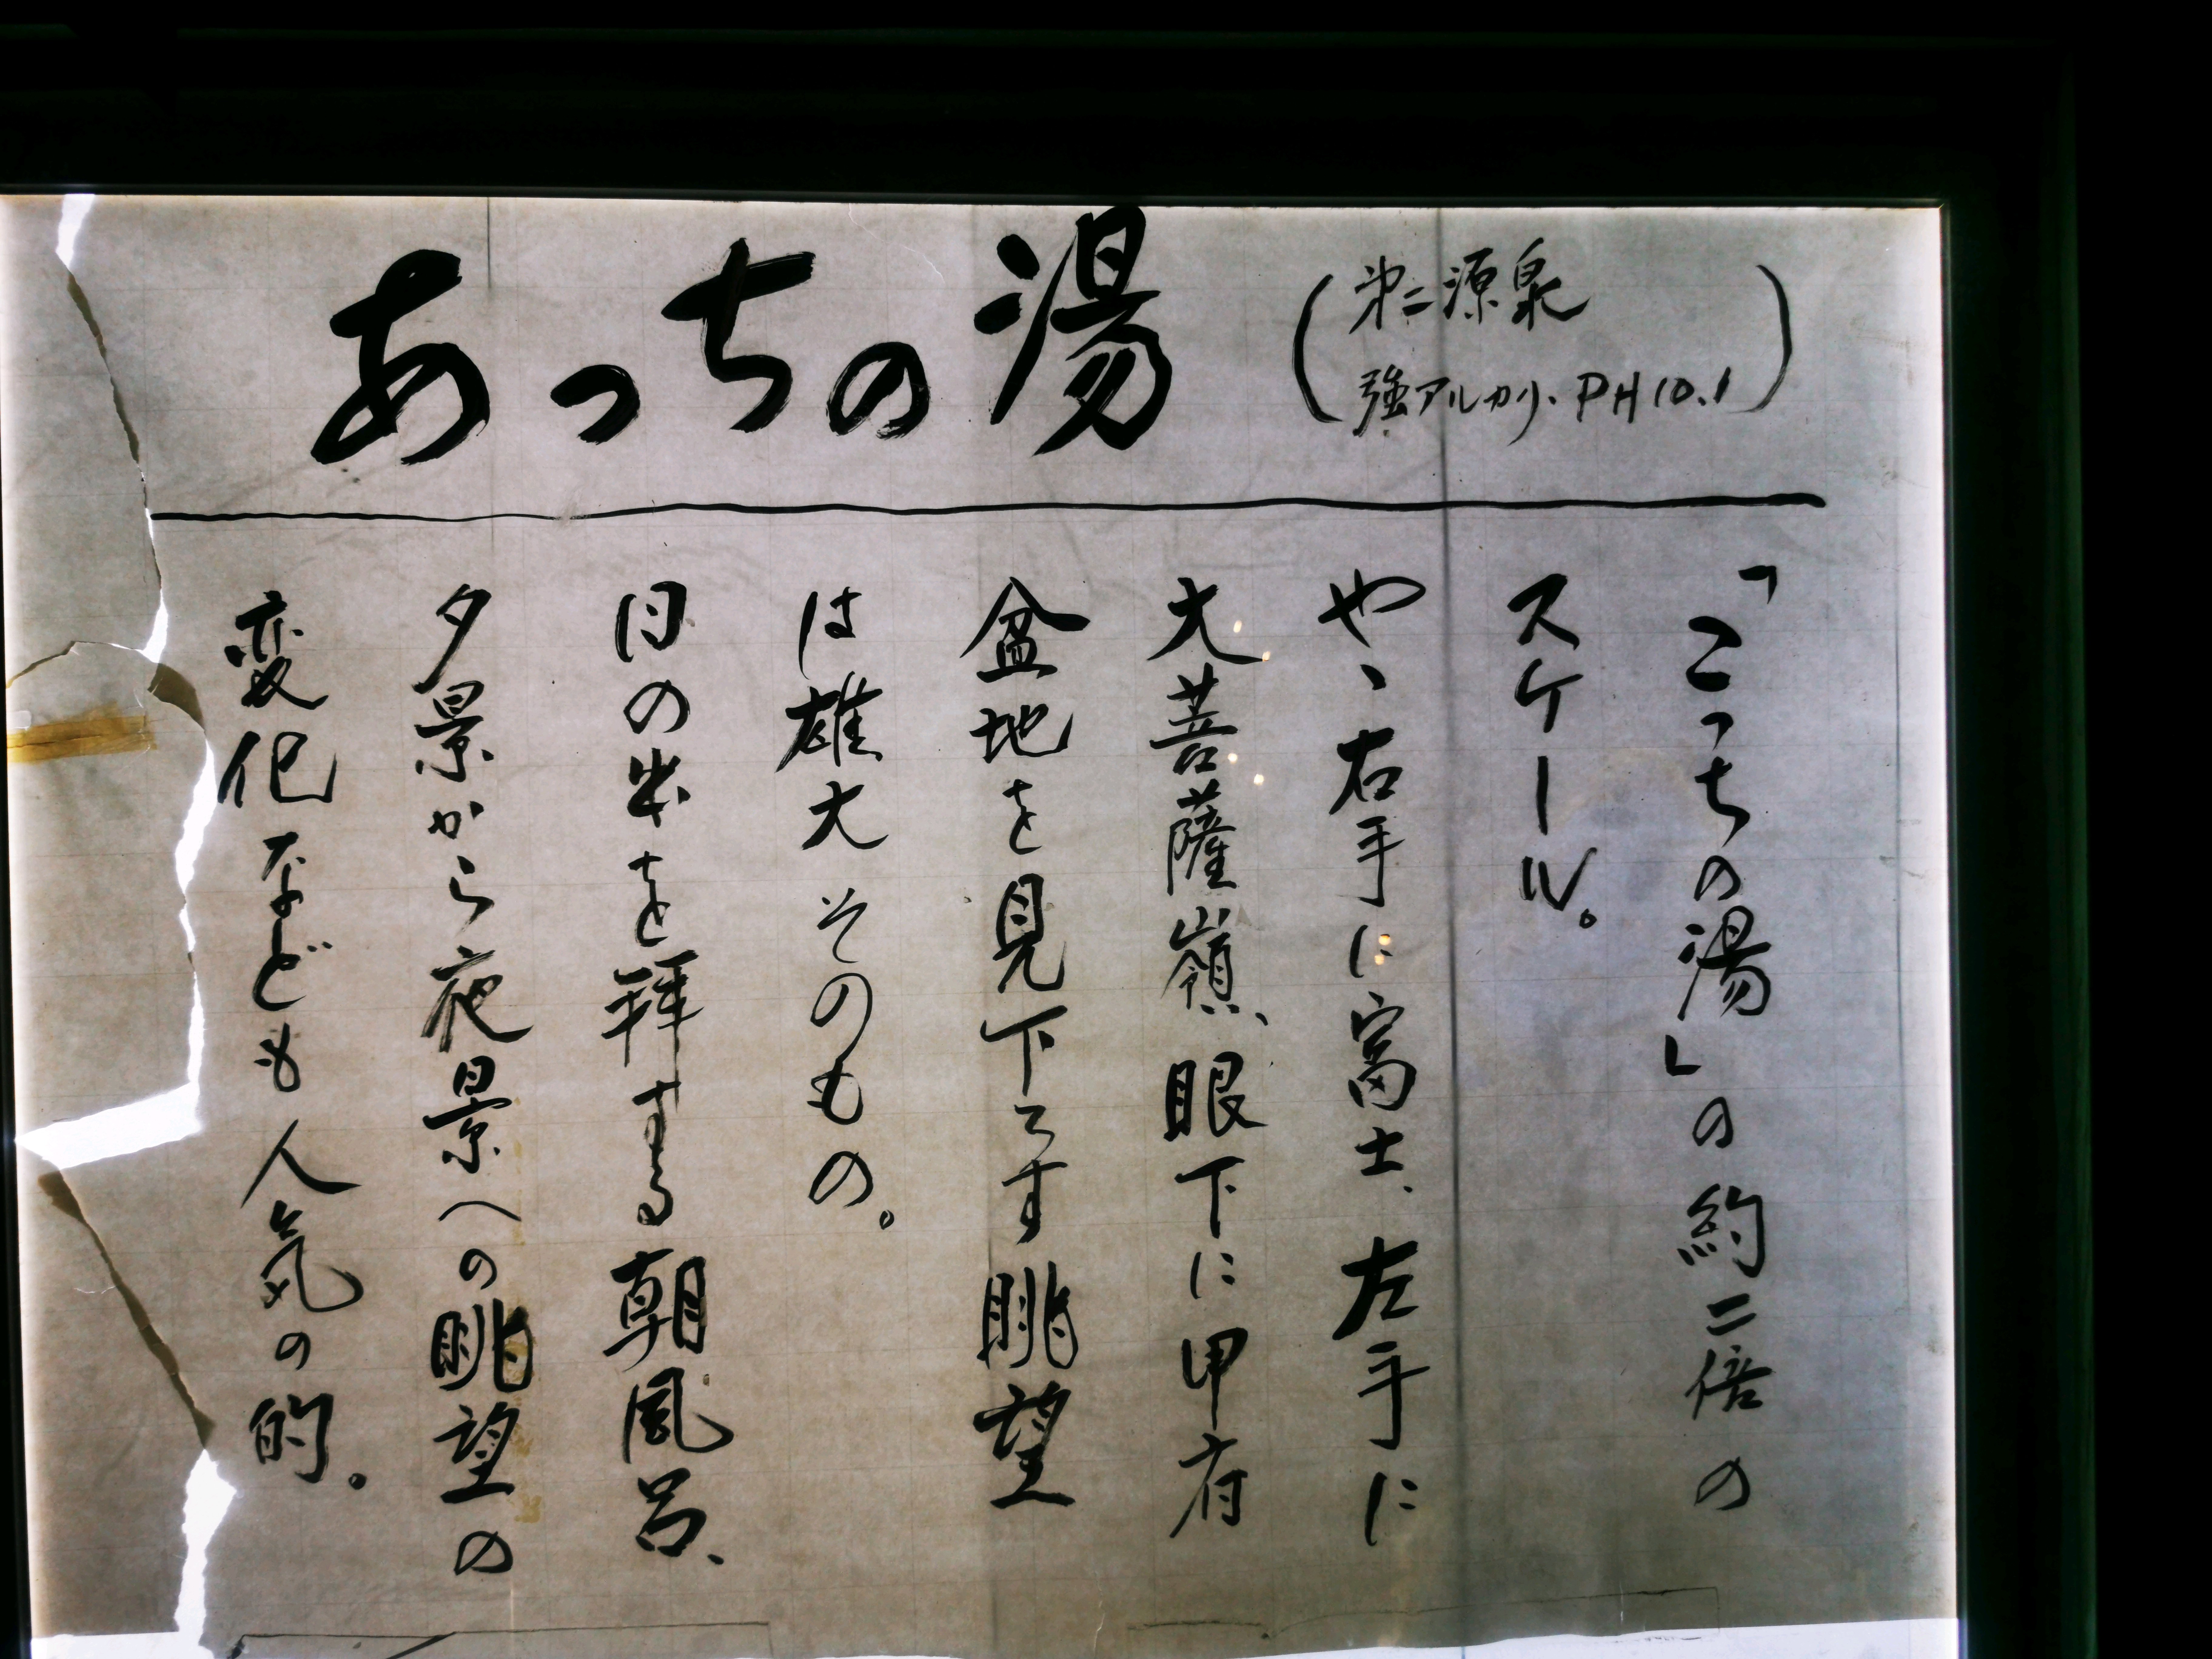 あっちの湯
（第二源泉
強アルカリ．PH10.1）
「こっちの湯」の約二倍の
スケール。
やゝ右手に富士、左手に
大菩薩嶺、眼下に甲府
盆地を見下ろす眺望
は雄大そのもの。
日の出を拝する朝風呂、
夕景から夜景への眺望の
変化なども人気の的。